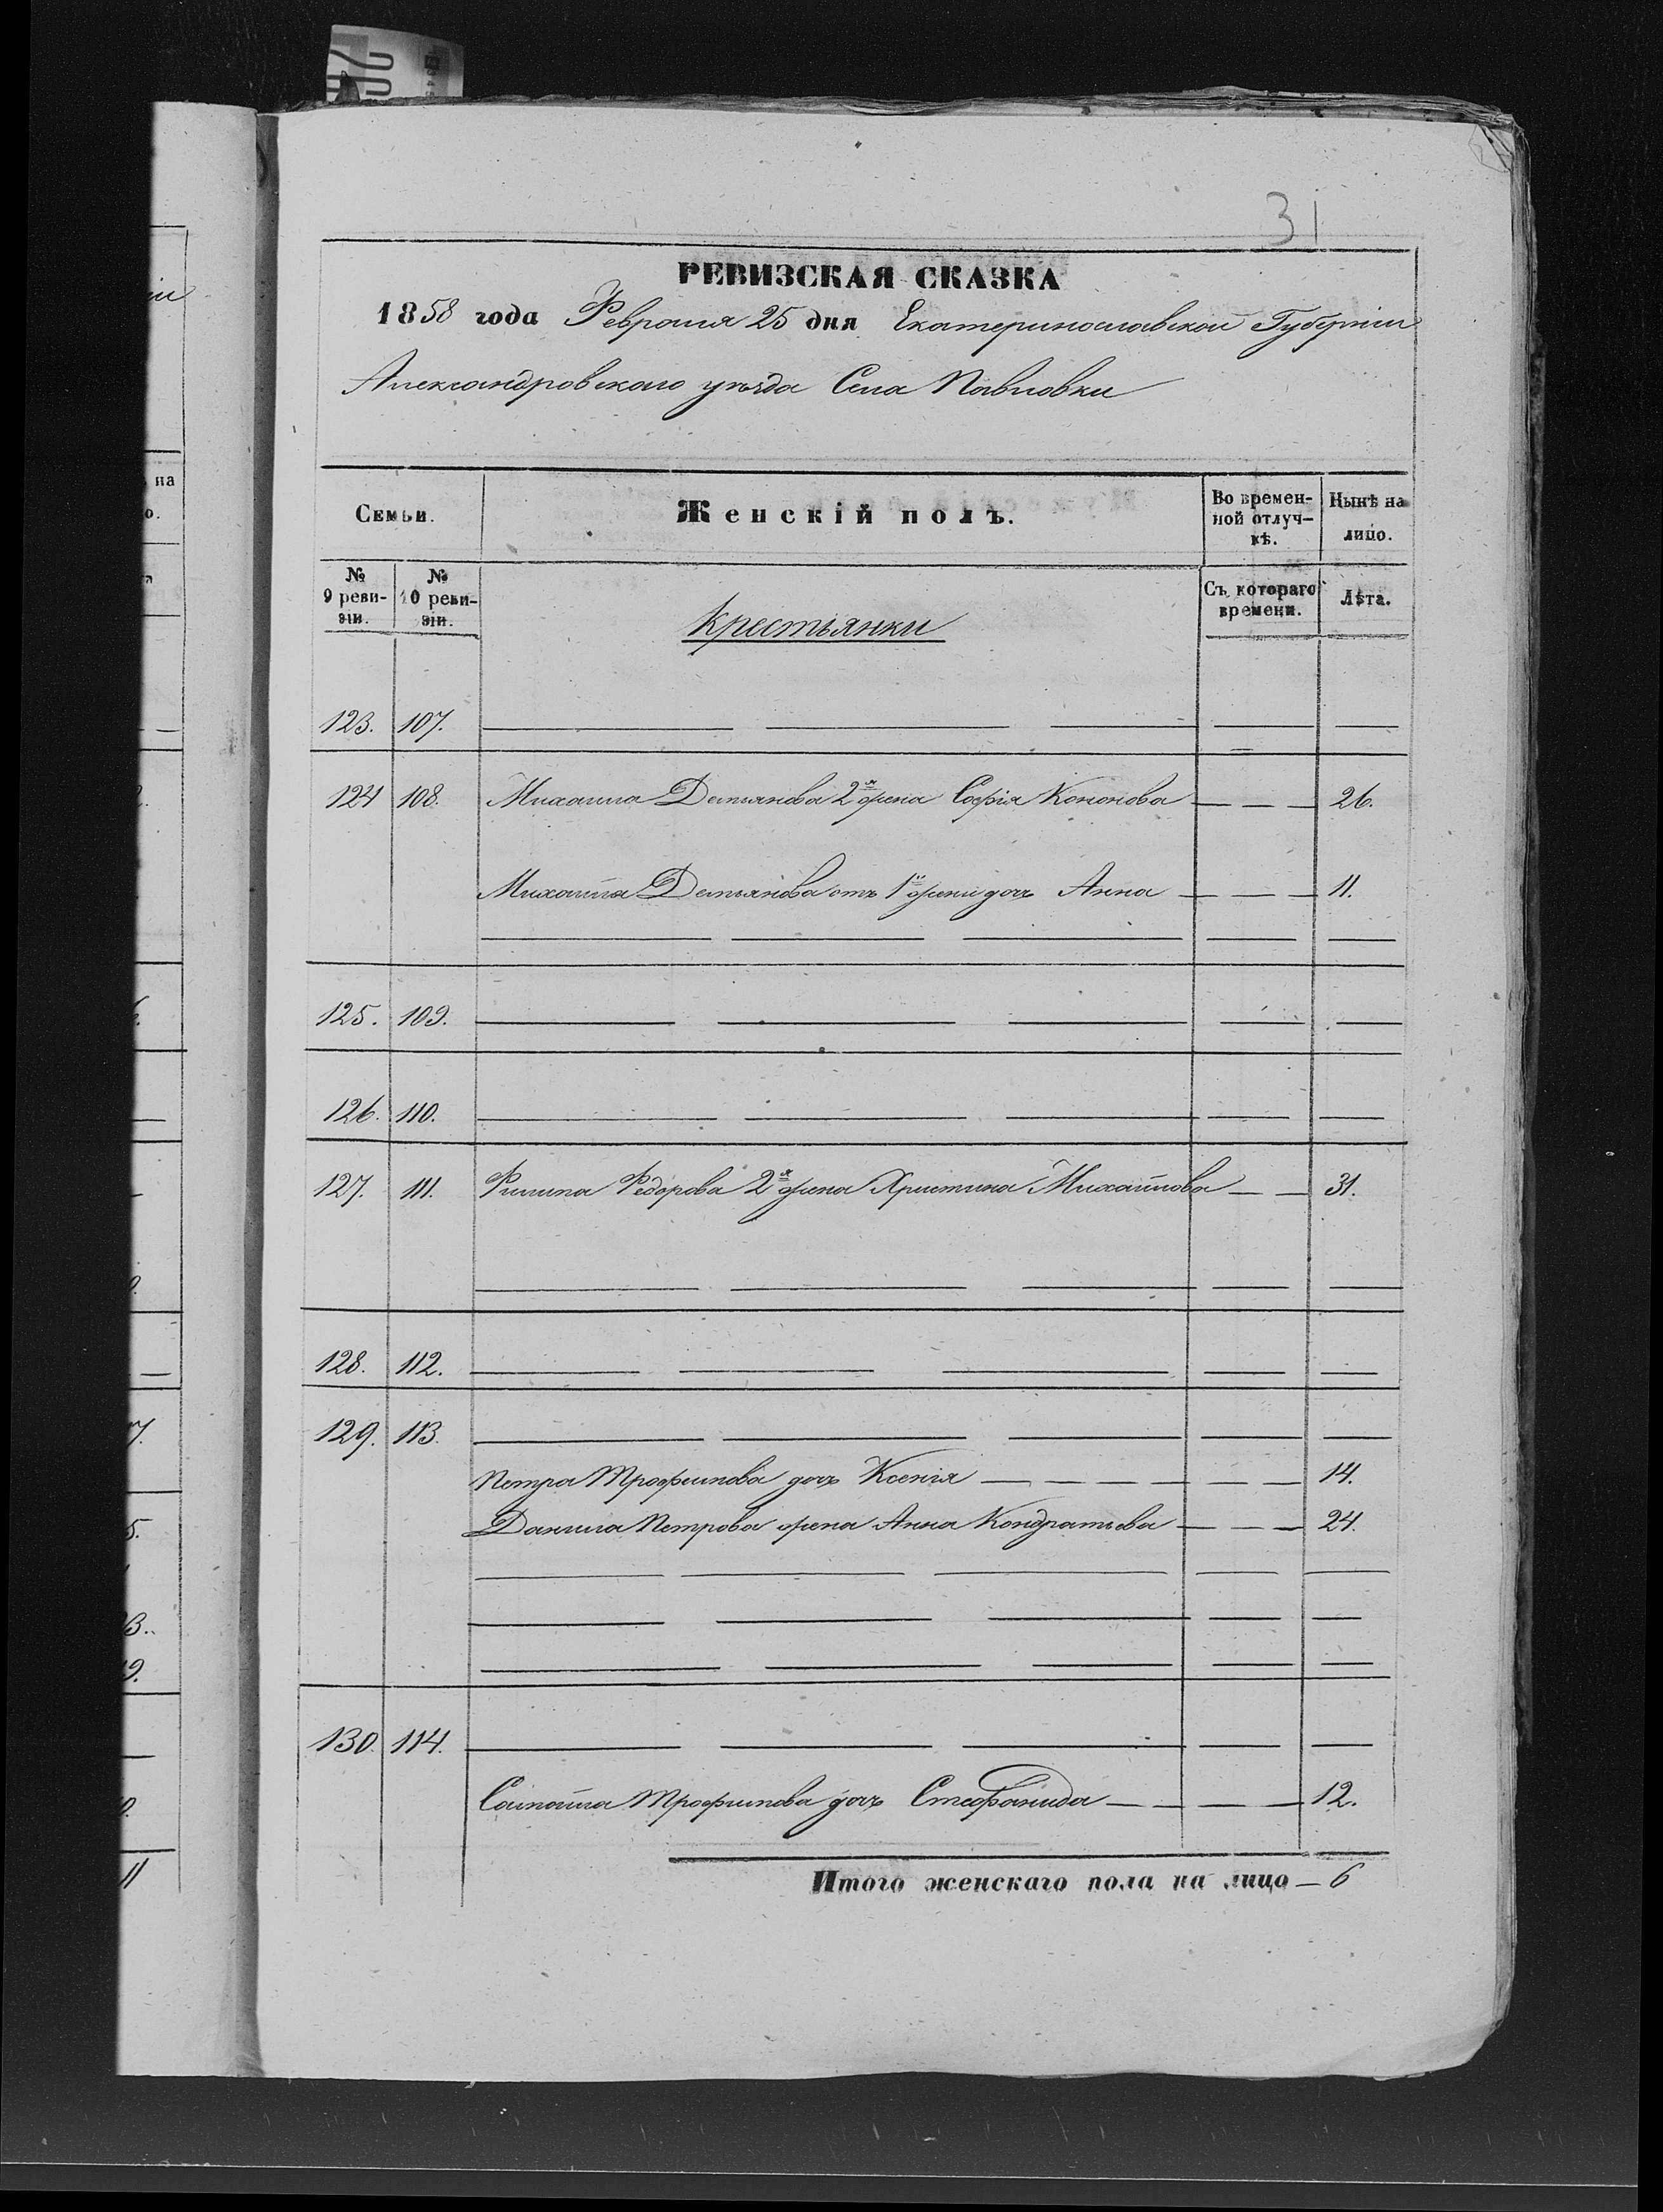 31
РЕВИЗСКАЯ СКАЗКА
1858 года Февраля 25 дня Екатеринославской Губерніи
Александровскаго уѣзда Села Павловки
Семьи.
Женскій полъ.
Во времен-
ной отлуч-
кѣ.
Нынѣ на
лицо.
№
9 реви-
зіи.
№
10 реви-
зіи.
Крестьянки
Съ котораго
времени.
Лѣта.
123. 107.
124 108. Михаила Демьянова 2я жена Софія Кононова 26.
Михайла Демьянова отъ 1й жени дочь Анна 11.
125. 109.
126. 110.
127. 111. Филипа Федорова 2я жена Христина Михайлова 31.
128. 112.
129. 113.
Петра Трофимова дочь Ксенія 14.
Данила Петрова жена Анна Кондратьева 24.
130. 114.
Трофимова дочь Стефанида 12.
Итого женскаго пола на лицо — 6